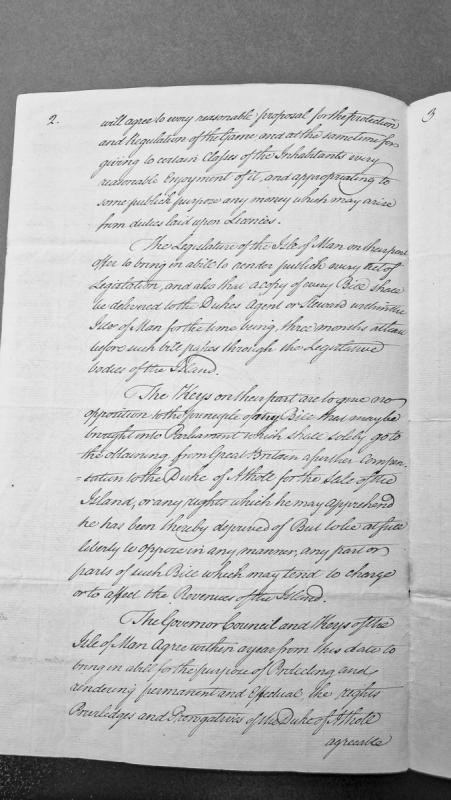 2.
3
will agree to every reasonable proposal for the protection
and Regulation of the Game and at the same time for
giving to certain Classes of the Inhabitants every
reasonable Enjoyment of it, and appropriating to
some publick purpose any money which may arise
from duties laid upon Licences.
The Legislature of the Isle of Man on their part
offer to bring in a bill to render publick every Act of
Legislation, and also that a copy of every Bill shall
be delivered to the Dukes Agent or Steward within the
Isle of Man for the time being, three months at least
before such bill passes through the Legislative
bodies of the Island.
The Keys on their part are to give no
opposition to the principle of any Bill that may be
brought into Parliament which shall solely go to
the obtaining from Great Britain a further Compen-
-sation to the Duke of Atholl for the Sale of the
Island, or any rights which he may apprehend
he has been thereby deprived of But to be at full
liberty to oppose in any manner, any part or
parts of such Bill which may tend to charge
or to affect the Revenues of the Island.
The Governor Council and Keys of the
Isle of Man Agree within a year from this date to
bring in a bill for the purpose of Protecting and
rendering permanent and Effectual the rights
Priviledges and Prerogatives of the Duke of Atholl
agreeable